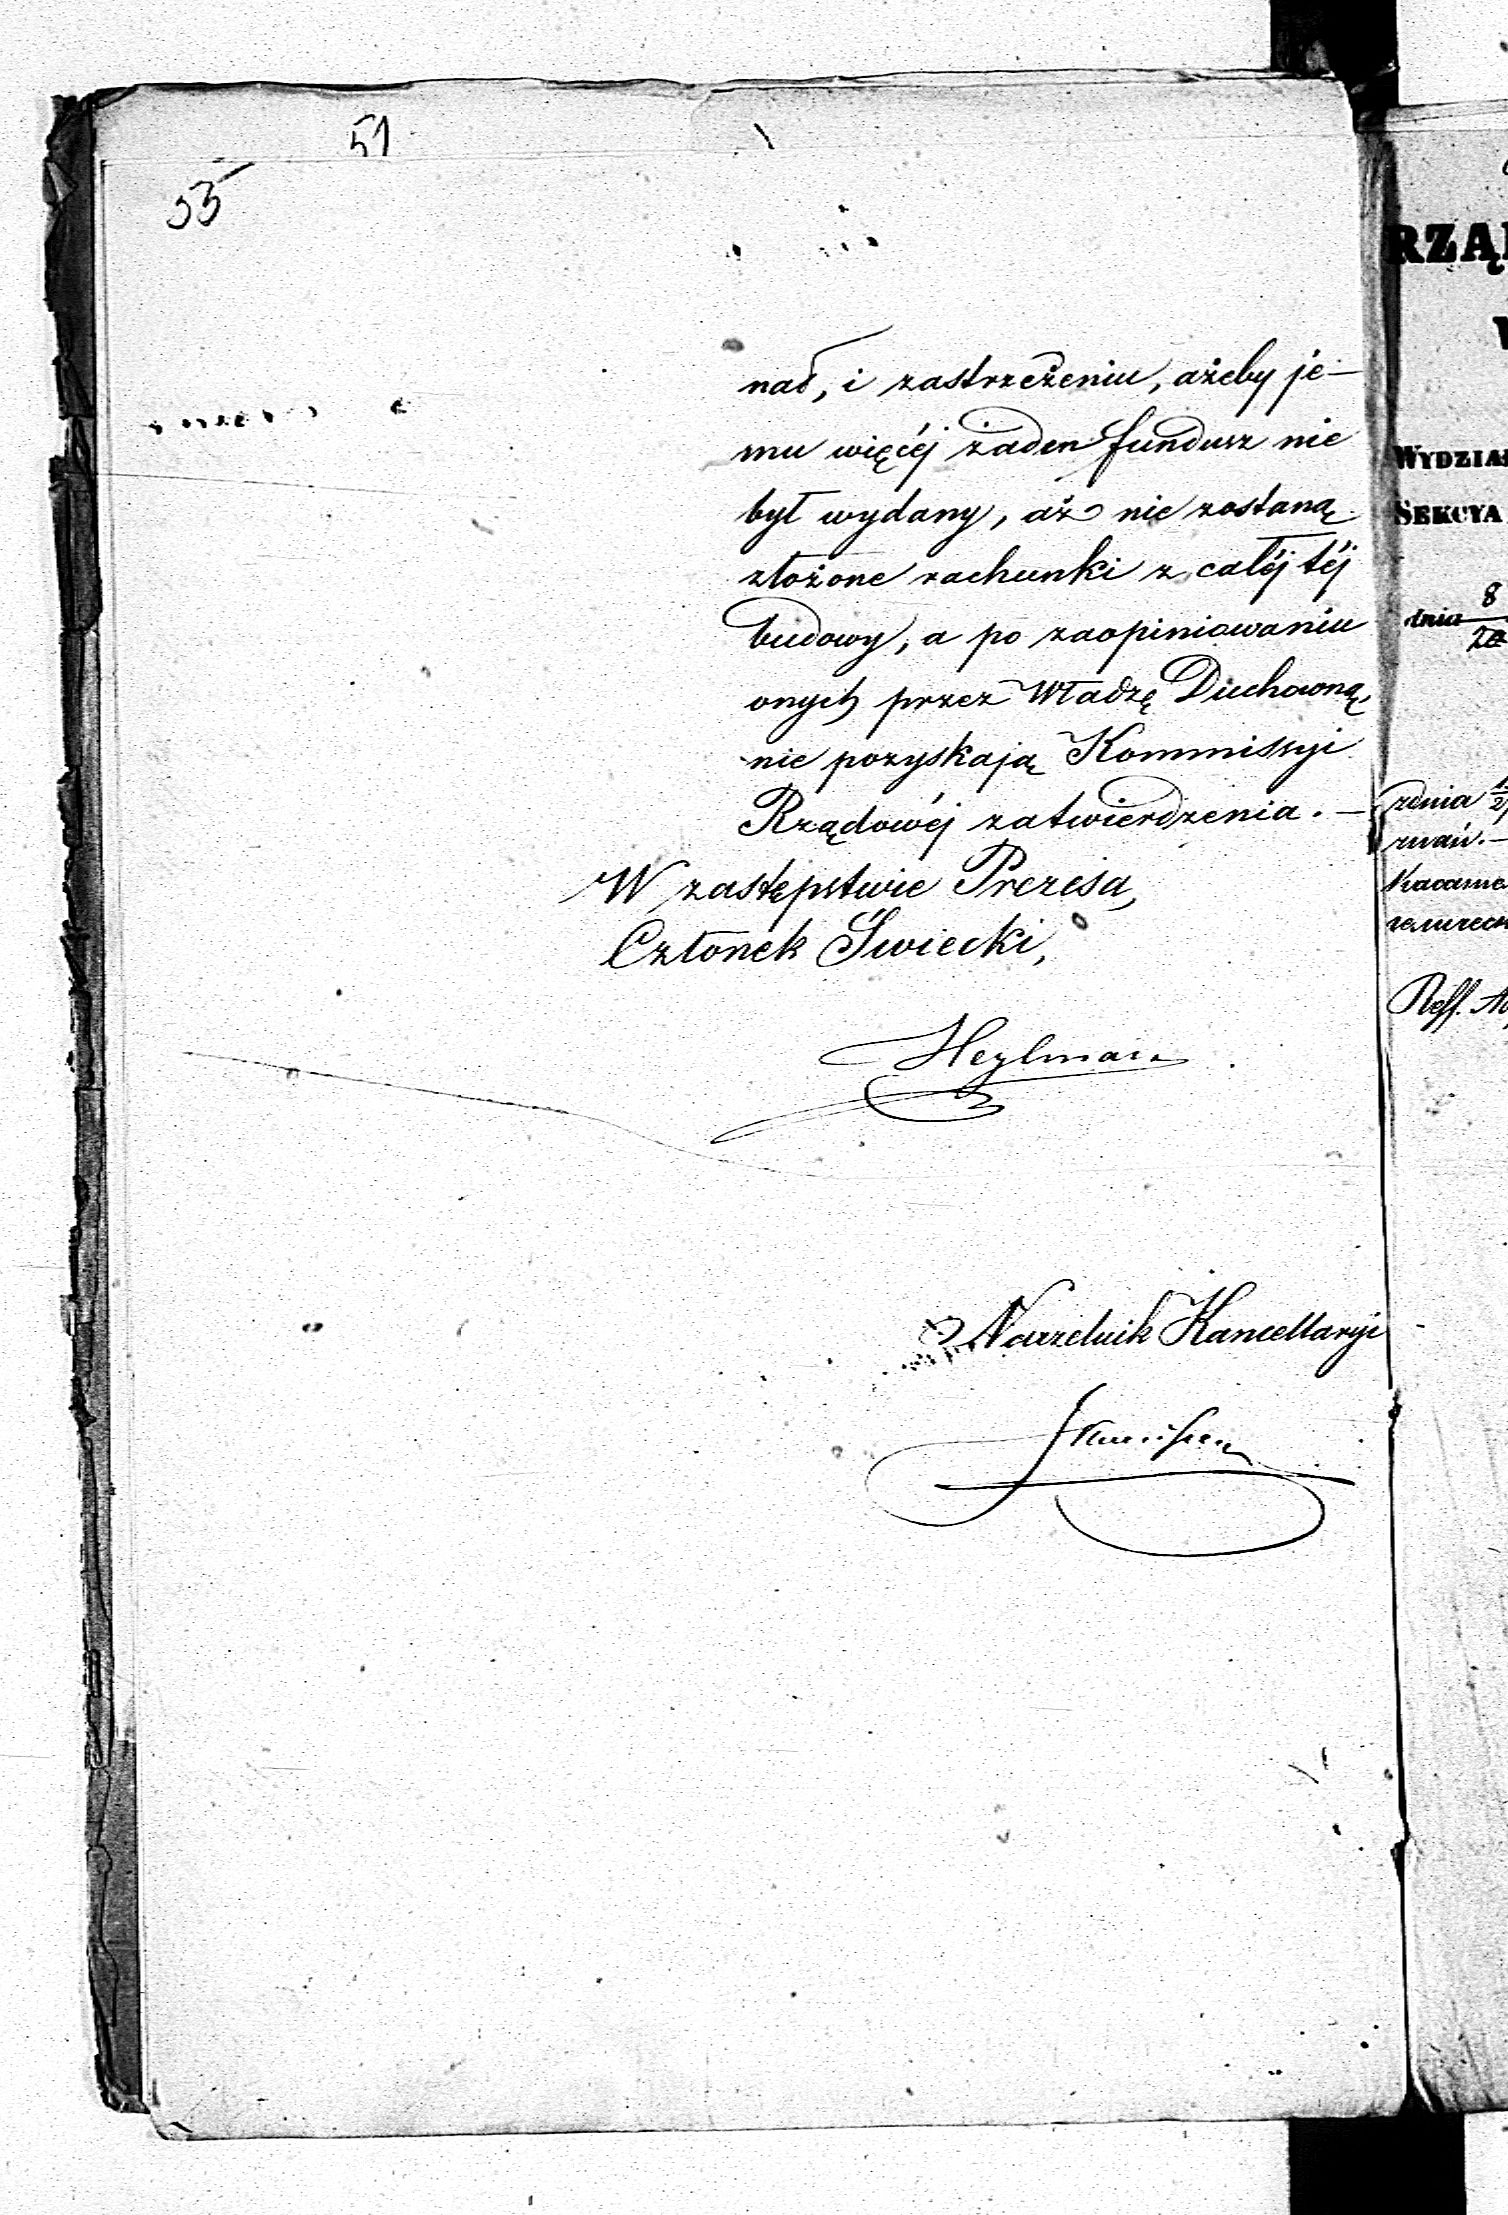 51
53
nad, i zastrzeżeniu, ażeby je-
mu więcéj żaden fundusz nie
był wydany, aż nie zostaną
złożone rachunki z całéj téj
budowy, a po zaopiniowaniu
onych przez Władzę Duchowną,
nie pozyskają Kommissyi
Rządowéj zatwierdzenia. —
W zastępstwie Prezesa,
Członek Świecki,
Heylman
Naczelnik Kancellaryi
RZĄ
WYDZIAŁ
SEKCYA
dnia 8/20
Reff.